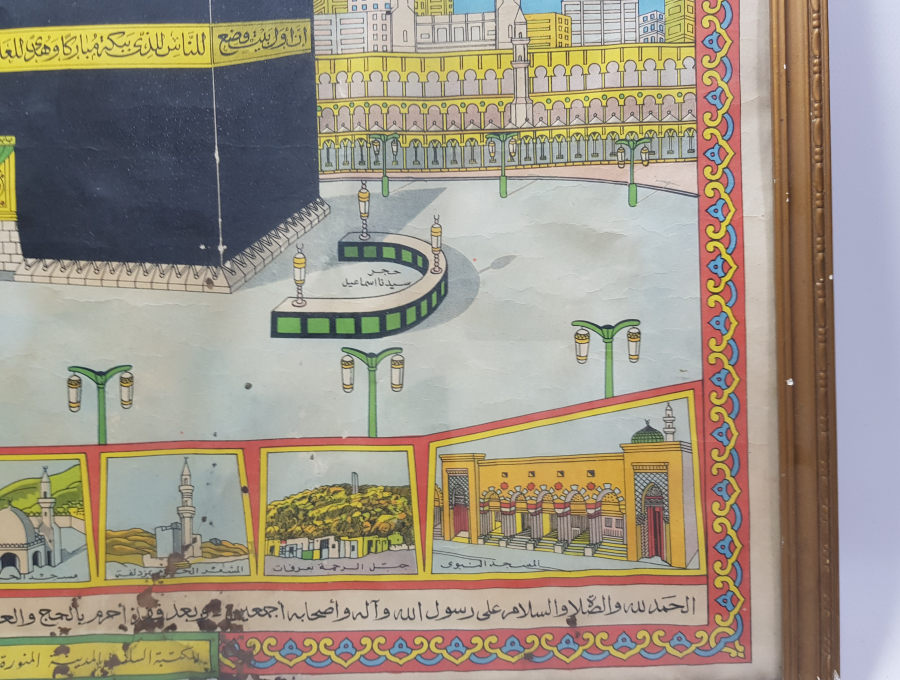 ان اول بيت وضع للناس للذي ببكة مباركا وهدى للعا
حجر
سيدنا اسماعيل
المسجد النبوي
جبل الرحمة بعرفات
المشعر الحرام بمزدلفة
مسجد
الحمد لله والصلاة والسلام على رسول الله وآله وأصحابه أجمعين وبعد أحرم بالحج والع
المكتبة السل المدينة المنورة